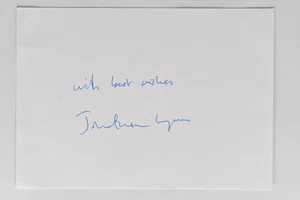 with best wishes
Jonathan Lynn